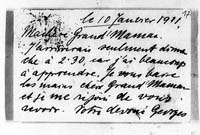 le 10 Janvier 1911
Ma chère Grand Maman
J'arriverais seulement dima
che à 2.30, car j'ai beaucoup
à apprendre. Je vous baise
les mains chère Grand Maman
et je me réjouis de vous
revoir. Votre dévoué Georges